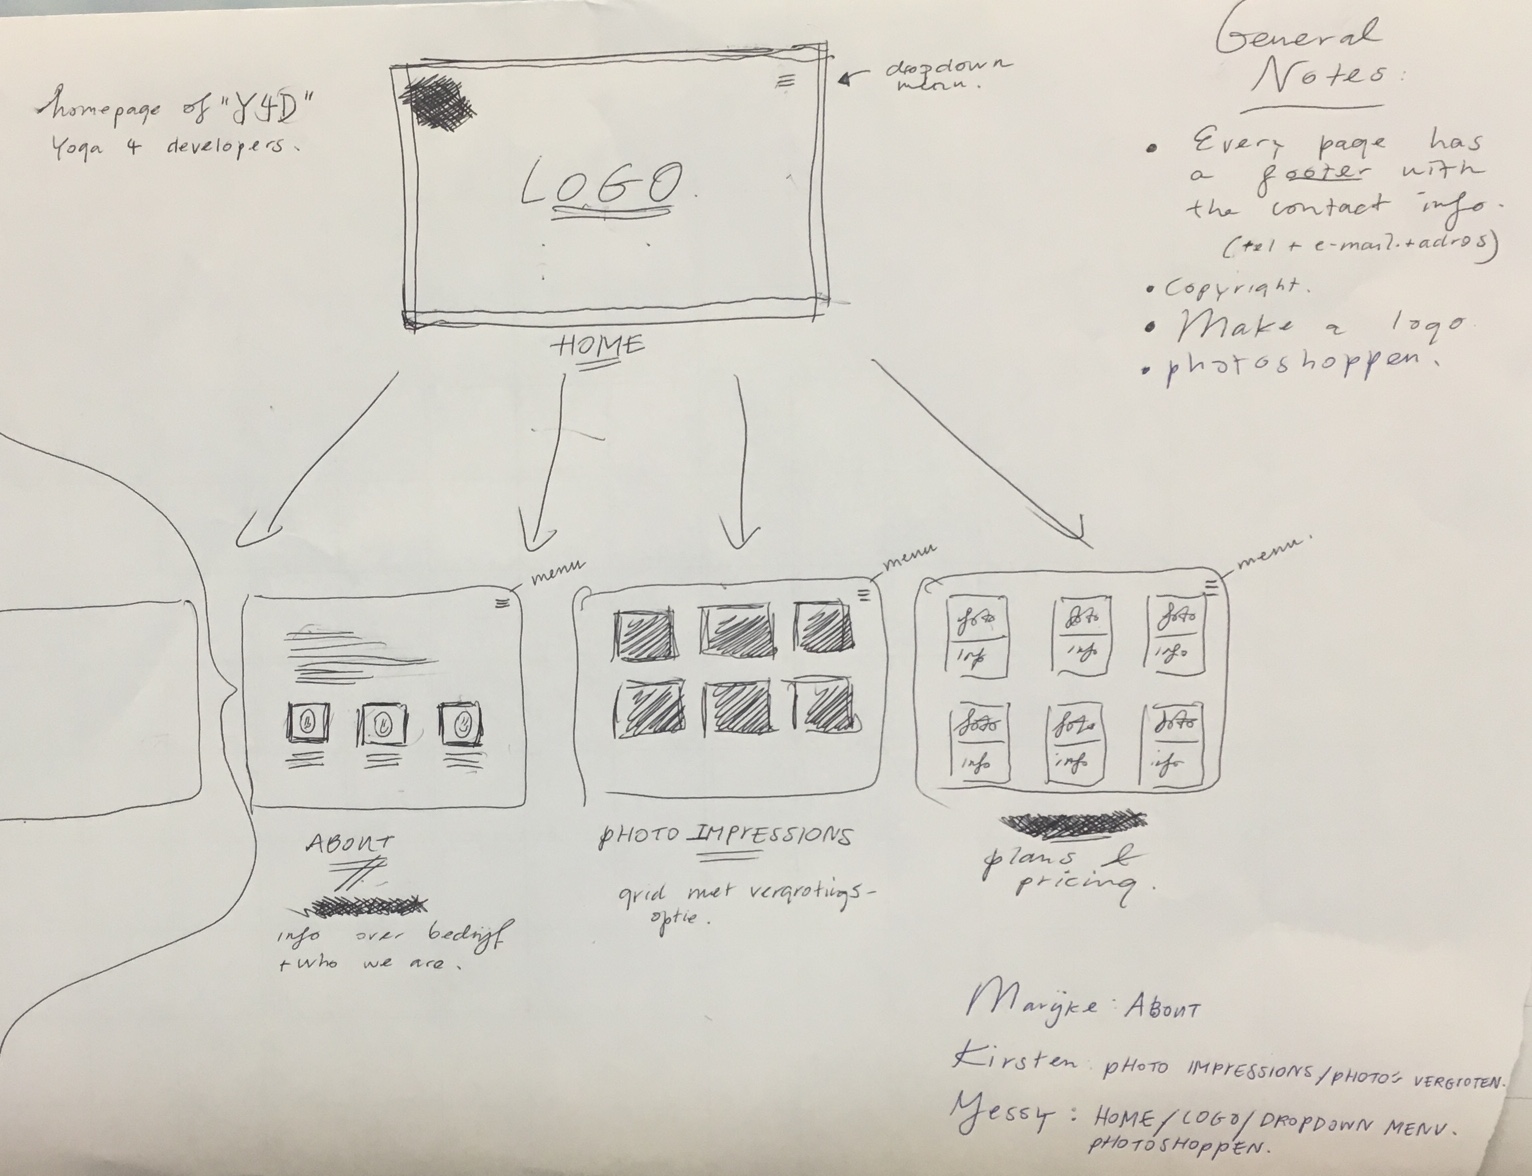 homepage of "Y4D"
Yoga 4 developers.
dropdown
menu.
LOGO.
HOME
General
Notes:
• Every page has
a footer with
the contact info.
(tel + e-mail + adres)
• Copyright.
• Make a logo
• photoshoppen.
menu
menu
menu.
foto
info
foto
info
foto
info
foto
info
foto
info
foto
info
ABOUT
info over bedrijf
+ who we are.
PHOTO IMPRESSIONS
grid met vergrotings-
optie.
plans &
pricing.
Marijke: ABOUT
Kirsten: PHOTO IMPRESSIONS/PHOTO'S VERGROTEN.
Yessy: HOME/LOGO/DROPDOWN MENU.
PHOTOSHOPPEN.